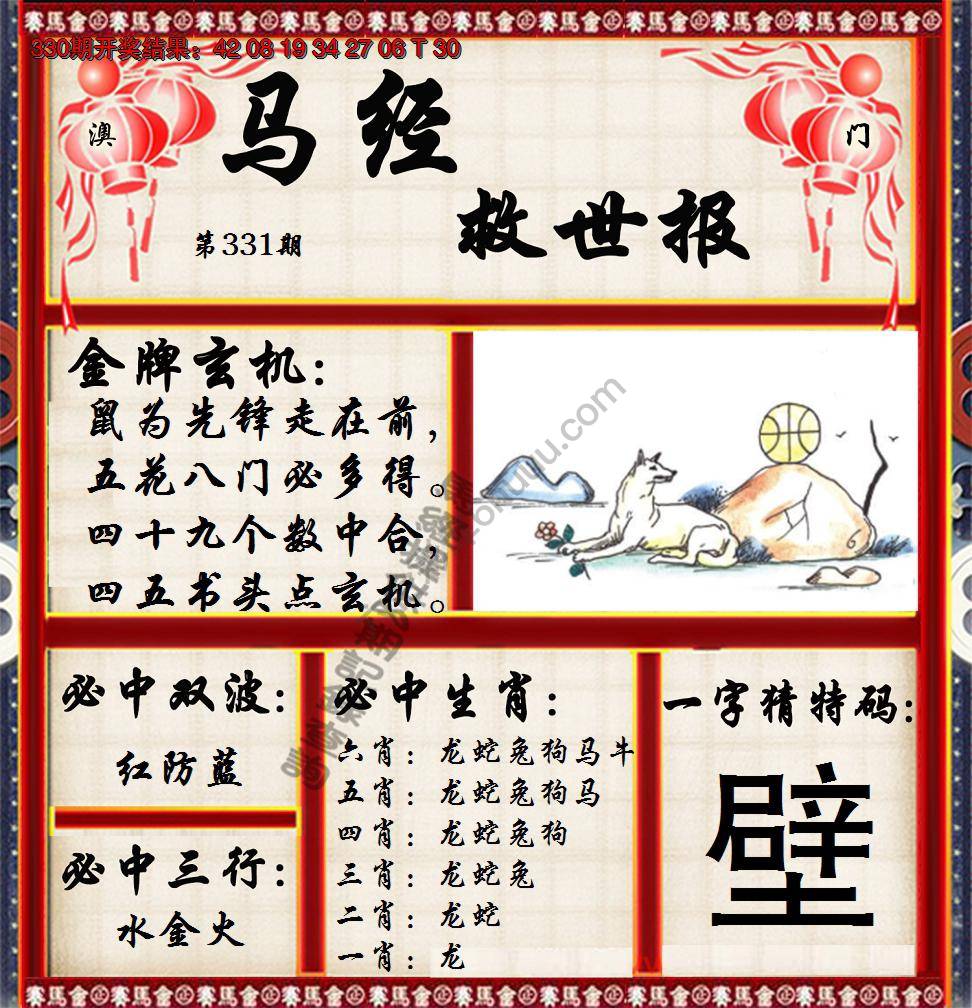 330期开奖结果：42 08 19 34 27 06 T 30
澳
门
马经
救世报
第331期
金牌玄机：
鼠为先锋走在前，
五花八门必多得。
四十九个数中合，
四五书头点玄机。
必中双波：
红防蓝
必中三行：
水金火
必中生肖：
六肖：龙蛇兔狗马牛
五肖：龙蛇兔狗马
四肖：龙蛇兔狗
三肖：龙蛇兔
二肖：龙蛇
一肖：龙
一字猜特码：
壁